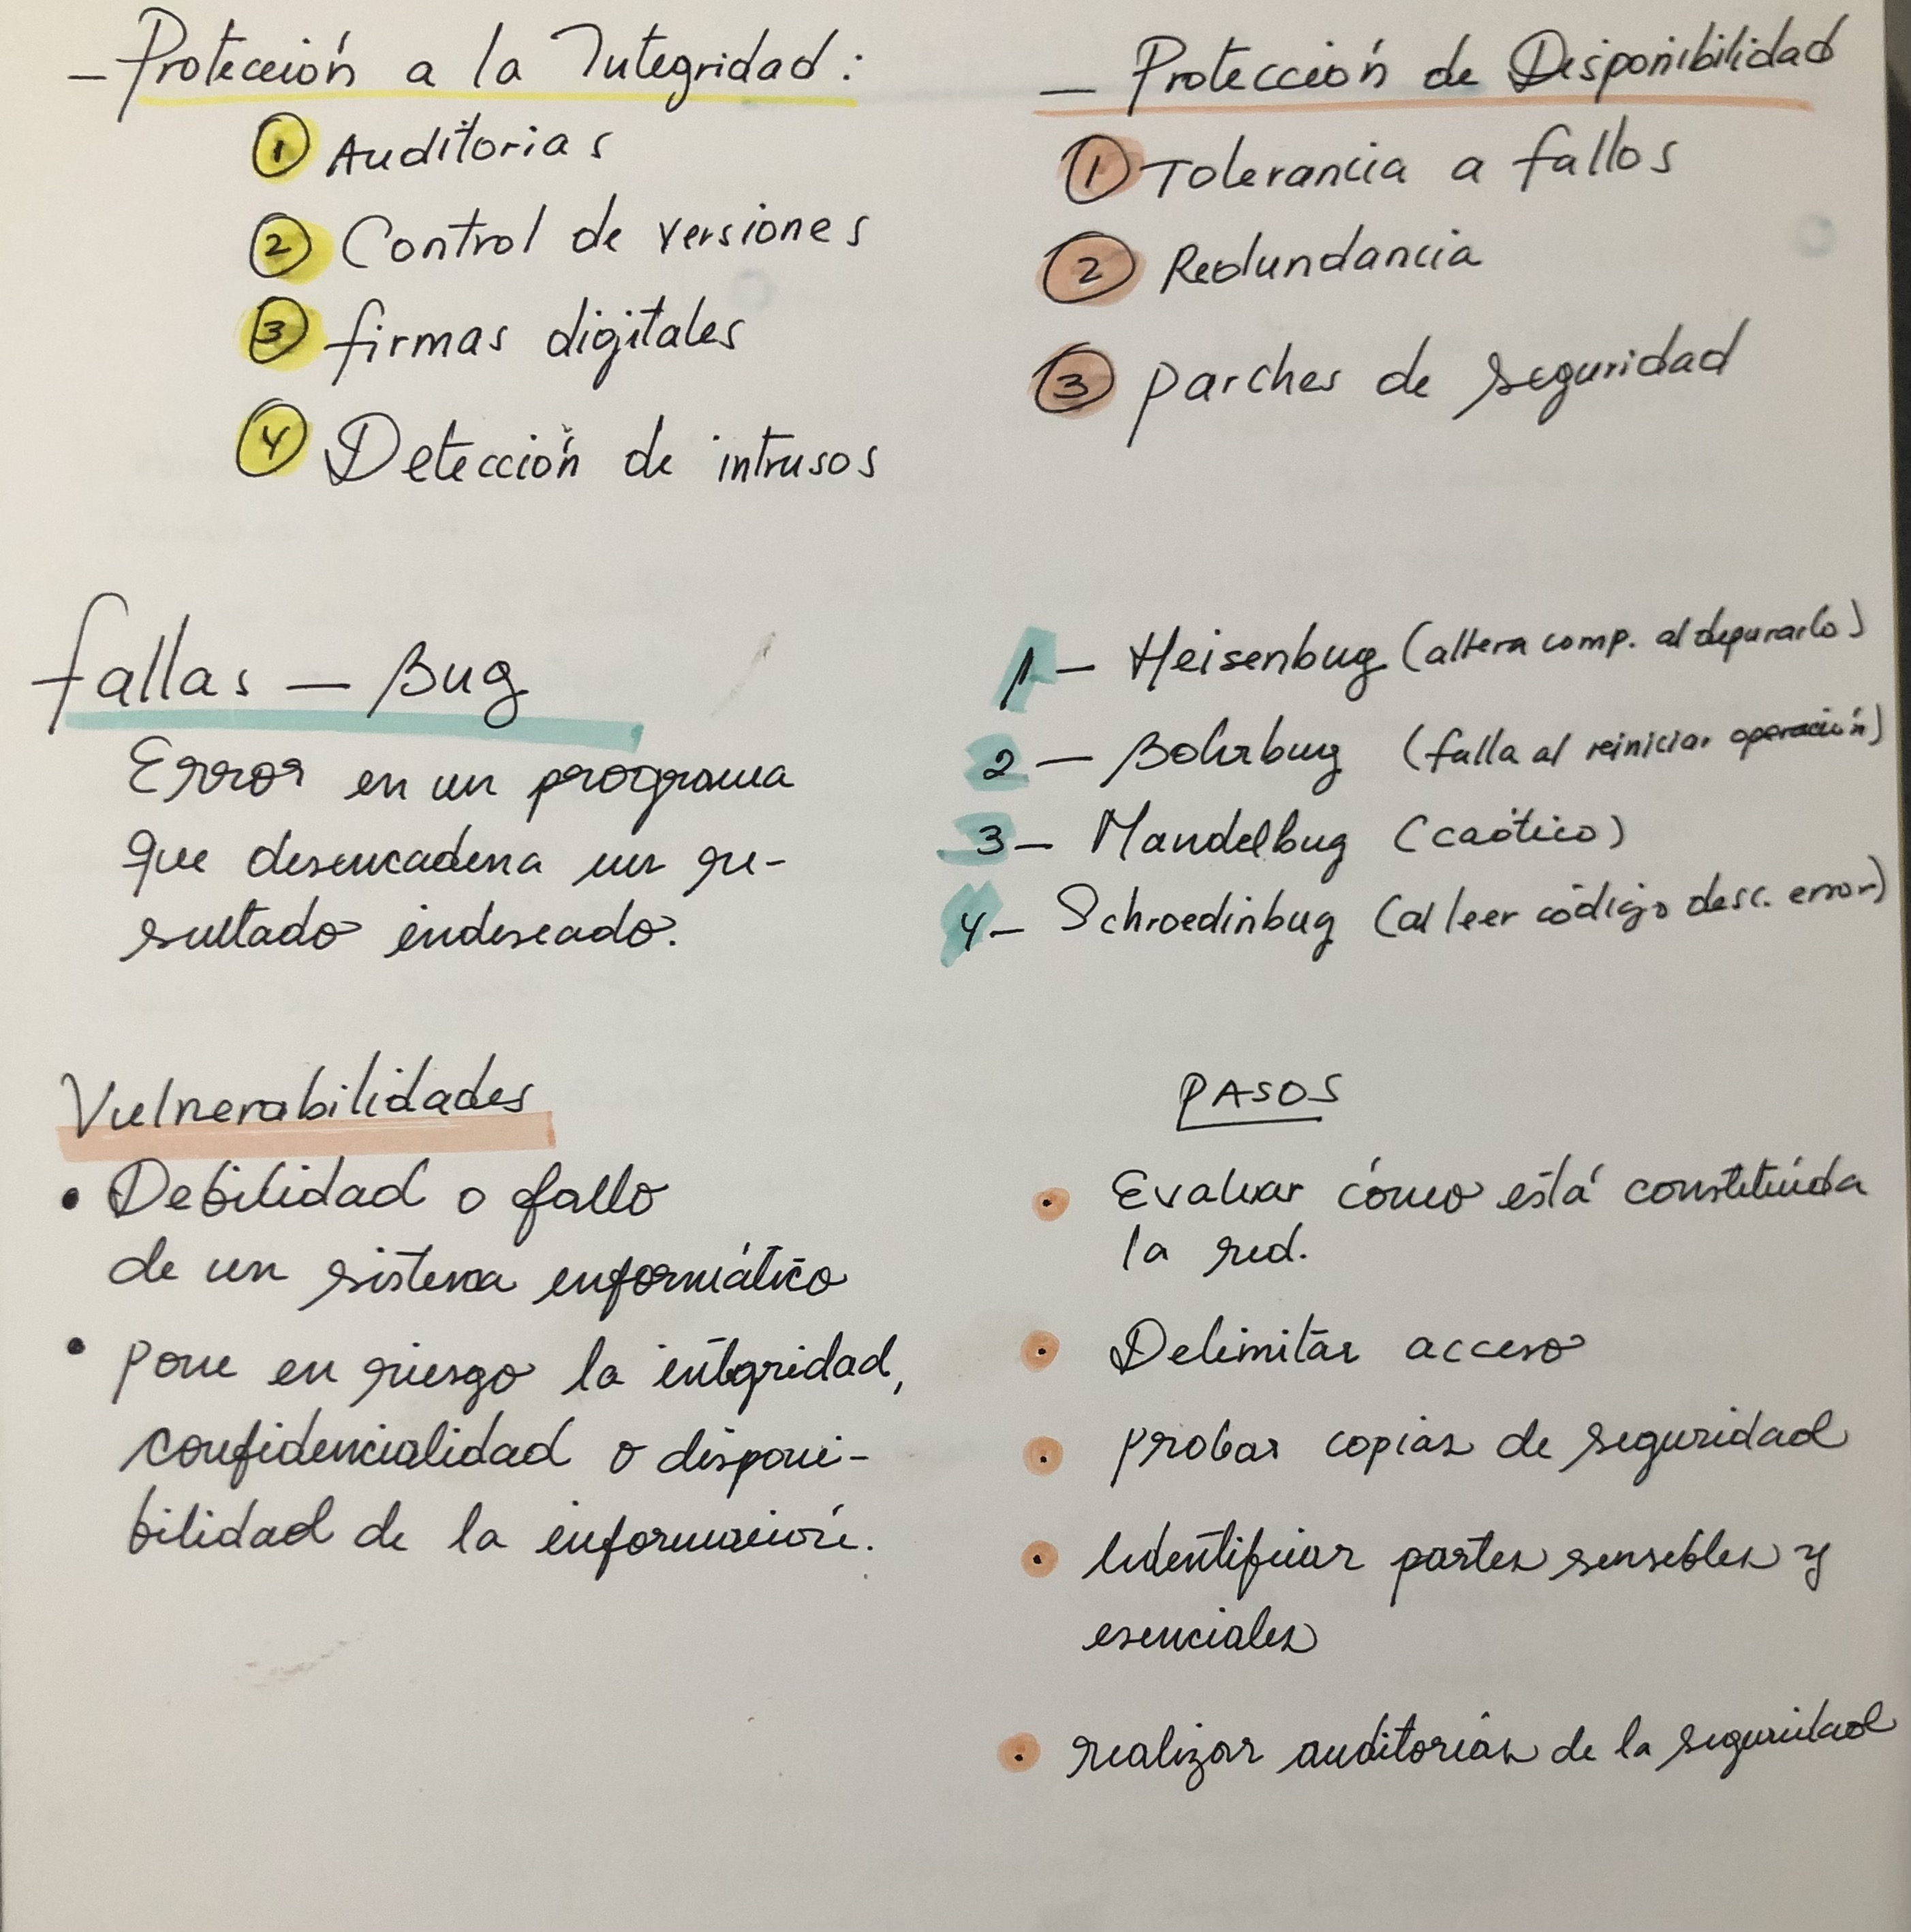 – Protección a la Integridad:
① Auditorias
② Control de versiones
③ firmas digitales
④ Detección de intrusos
– Protección de Disponibilidad
① Tolerancia a fallos
② Redundancia
③ parches de seguridad
fallas – Bug
Error en un programa
que desencadena un re-
sultado indeseado.
1 – Heisenbug (altera comp. al depurarlo)
2 – Bohrbug (falla al reiniciar operación)
3 – Mandelbug (caótico)
4 – Schroedinbug (al leer código desc. error)
Vulnerabilidades
• Debilidad o fallo
de un sistema informático
• pone en riesgo la integridad,
confidencialidad o disponi-
bilidad de la información.
PASOS
• Evaluar cómo está constituída
la red.
• Delimitar acceso
• probar copias de seguridad
• Identificar partes sensibles y
esenciales
• realizar auditorías de la seguridad